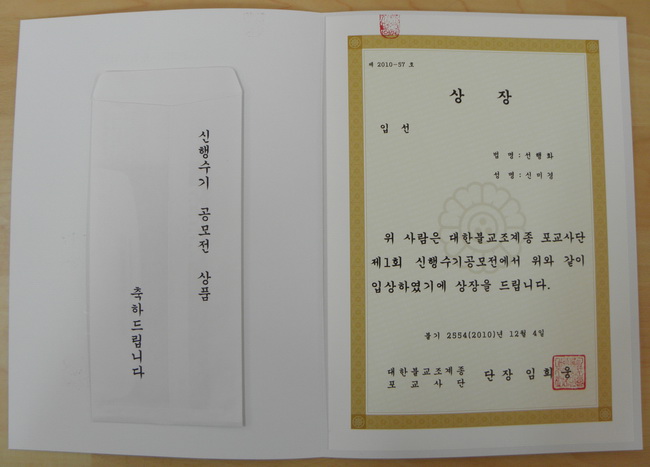 신행수기 공모전 상품
축하드립니다
제 2010-57 호
상 장
입 선
법 명:선행화
성 명:신미경
위 사람은 대한불교조계종 포교사단
제1회 신행수기공모전에서 위와 같이
입상하였기에 상장을 드립니다.
불기 2554(2010)년 12월 4일
대한불교조계종
포 교 사 단
단장 임희웅